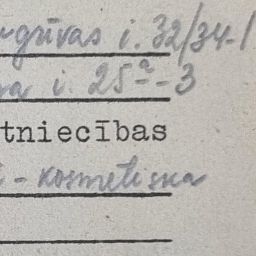 grīvas i. 32/34-1
i. 25ª-3
tniecības
- kosmetiska